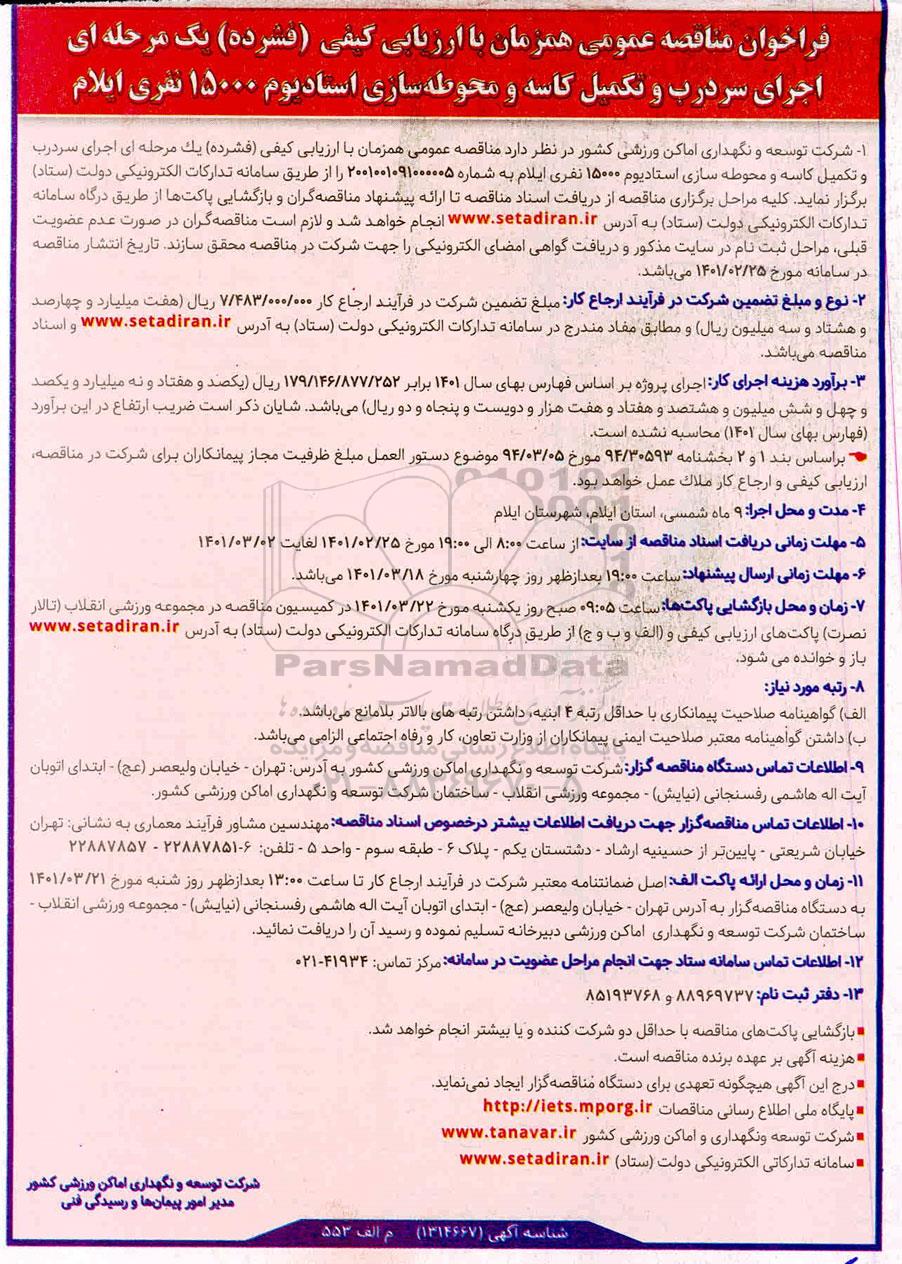 فراخوان مناقصه عمومی همزمان با ارزیابی کیفی (فشرده) یک مرحله ای
اجرای سردرب و تکمیل کاسه و محوطه‌سازی استادیوم ۱۵۰۰۰ نفری ایلام
۱- شرکت توسعه و نگهداری اماکن ورزشی کشور در نظر دارد مناقصه عمومی همزمان با ارزیابی کیفی (فشرده) یك مرحله ای اجرای سردرب
و تکمیل کاسه و محوطه سازی استادیوم ۱۵۰۰۰ نفری ایلام به شماره ۲۰۰۱۰۰۱۰۹۱۰۰۰۰۰۵ را از طریق سامانه تدارکات الکترونیکی دولت (ستاد)
برگزار نماید. کلیه مراحل برگزاری مناقصه از دریافت اسناد مناقصه تا ارائه پیشنهاد مناقصه‌گران و بازگشایی پاکت‌ها از طریق درگاه سامانه
تدارکات الکترونیکی دولت (ستاد) به آدرس www.setadiran.ir انجام خواهد شد و لازم است مناقصه‌گران در صورت عدم عضویت
قبلی، مراحل ثبت نام در سایت مذکور و دریافت گواهی امضای الکترونیکی را جهت شرکت در مناقصه محقق سازند. تاریخ انتشار مناقصه
در سامانه مورخ ۱۴۰۱/۰۲/۲۵ می‌باشد.
۲- نوع و مبلغ تضمین شرکت در فرآیند ارجاع کار: مبلغ تضمین شرکت در فرآیند ارجاع کار ۷/۴۸۳/۰۰۰/۰۰۰ ریال (هفت میلیارد و چهارصد
و هشتاد و سه میلیون ریال) و مطابق مفاد مندرج در سامانه تدارکات الکترونیکی دولت (ستاد) به آدرس www.setadiran.ir و اسناد
مناقصه می‌باشد.
۳- برآورد هزینه اجرای کار: اجرای پروژه بر اساس فهارس بهای سال ۱۴۰۱ برابر ۱۷۹/۱۴۶/۸۷۷/۲۵۲ ریال (یکصد و هفتاد و نه میلیارد و یکصد
و چهل و شش میلیون و هشتصد و هفتاد و هفت هزار و دویست و پنجاه و دو ریال) می‌باشد. شایان ذکر است ضریب ارتفاع در این برآورد
(فهارس بهای سال ۱۴۰۱) محاسبه نشده است.
براساس بند ۱ و ۲ بخشنامه ۹۴/۳۰۵۹۳ مورخ ۹۴/۰۳/۰۵ موضوع دستور العمل مبلغ ظرفیت مجاز پیمانکاران برای شرکت در مناقصه،
ارزیابی کیفی و ارجاع کار ملاك عمل خواهد بود.
۴- مدت و محل اجرا: ۹ ماه شمسی، استان ایلام، شهرستان ایلام
۵- مهلت زمانی دریافت اسناد مناقصه از سایت: از ساعت ۸:۰۰ الی ۱۹:۰۰ مورخ ۱۴۰۱/۰۲/۲۵ لغایت ۱۴۰۱/۰۳/۰۲
۶- مهلت زمانی ارسال پیشنهاد: ساعت ۱۹:۰۰ بعدازظهر روز چهارشنبه مورخ ۱۴۰۱/۰۳/۱۸ می‌باشد.
۷- زمان و محل بازگشایی پاکت‌ها: ساعت ۰۹:۰۵ صبح روز یکشنبه مورخ ۱۴۰۱/۰۳/۲۲ در کمیسیون مناقصه در مجموعه ورزشی انقلاب (تالار
نصرت) پاکت‌های ارزیابی کیفی و (الف و ب و ج) از طریق درگاه سامانه تدارکات الکترونیکی دولت (ستاد) به آدرس www.setadiran.ir
باز و خوانده می شود.
ParsNamadData
۸- رتبه مورد نیاز:
الف) گواهینامه صلاحیت پیمانکاری با حداقل رتبه ۴ ابنیه، داشتن رتبه های بالاتر بلامانع می‌باشد.
ب) داشتن گواهینامه معتبر صلاحیت ایمنی پیمانکاران از وزارت تعاون، کار و رفاه اجتماعی الزامی می‌باشد.
پایگاه اطلاع رسانی مناقصه و مزایده
۹- اطلاعات تماس دستگاه مناقصه گزار: شرکت توسعه و نگهداری اماکن ورزشی کشور به آدرس: تهران - خیابان ولیعصر (عج) - ابتدای اتوبان
آیت اله هاشمی رفسنجانی (نیایش) - مجموعه ورزشی انقلاب - ساختمان شرکت توسعه و نگهداری اماکن ورزشی کشور.
۱۰- اطلاعات تماس مناقصه‌گزار جهت دریافت اطلاعات بیشتر درخصوص اسناد مناقصه: مهندسین مشاور فرآیند معماری به نشانی: تهران
خیابان شریعتی - پایین‌تر از حسینیه ارشاد - دشتستان یکم - پلاک ۶ - طبقه سوم - واحد ۵ - تلفن: ۶-۲۲۸۸۷۸۵۱ - ۲۲۸۸۷۸۵۷
۱۱- زمان و محل ارائه پاکت الف: اصل ضمانتنامه معتبر شرکت در فرآیند ارجاع کار تا ساعت ۱۳:۰۰ بعدازظهر روز شنبه مورخ ۱۴۰۱/۰۳/۲۱
به دستگاه مناقصه‌گزار به آدرس تهران - خیابان ولیعصر (عج) - ابتدای اتوبان آیت اله هاشمی رفسنجانی (نیایش) - مجموعه ورزشی انقلاب -
ساختمان شرکت توسعه و نگهداری اماکن ورزشی دبیرخانه تسلیم نموده و رسید آن را دریافت نمائید.
۱۲- اطلاعات تماس سامانه ستاد جهت انجام مراحل عضویت در سامانه: مرکز تماس: ۴۱۹۳۴-۰۲۱
۱۳- دفتر ثبت نام: ۸۸۹۶۹۷۳۷ و ۸۵۱۹۳۷۶۸
بازگشایی پاکت‌های مناقصه با حداقل دو شرکت کننده و یا بیشتر انجام خواهد شد.
هزینه آگهی بر عهده برنده مناقصه است.
درج این آگهی هیچگونه تعهدی برای دستگاه مناقصه‌گزار ایجاد نمی‌نماید.
پایگاه ملی اطلاع رسانی مناقصات http://iets.mporg.ir
شرکت توسعه ونگهداری و اماکن ورزشی کشور www.tanavar.ir
سامانه تدارکاتی الکترونیکی دولت (ستاد) www.setadiran.ir
شرکت توسعه و نگهداری اماکن ورزشی کشور
مدیر امور پیمان‌ها و رسیدگی فنی
شناسه آگهی (۱۳۱۴۶۶۷) م الف ۵۵۳